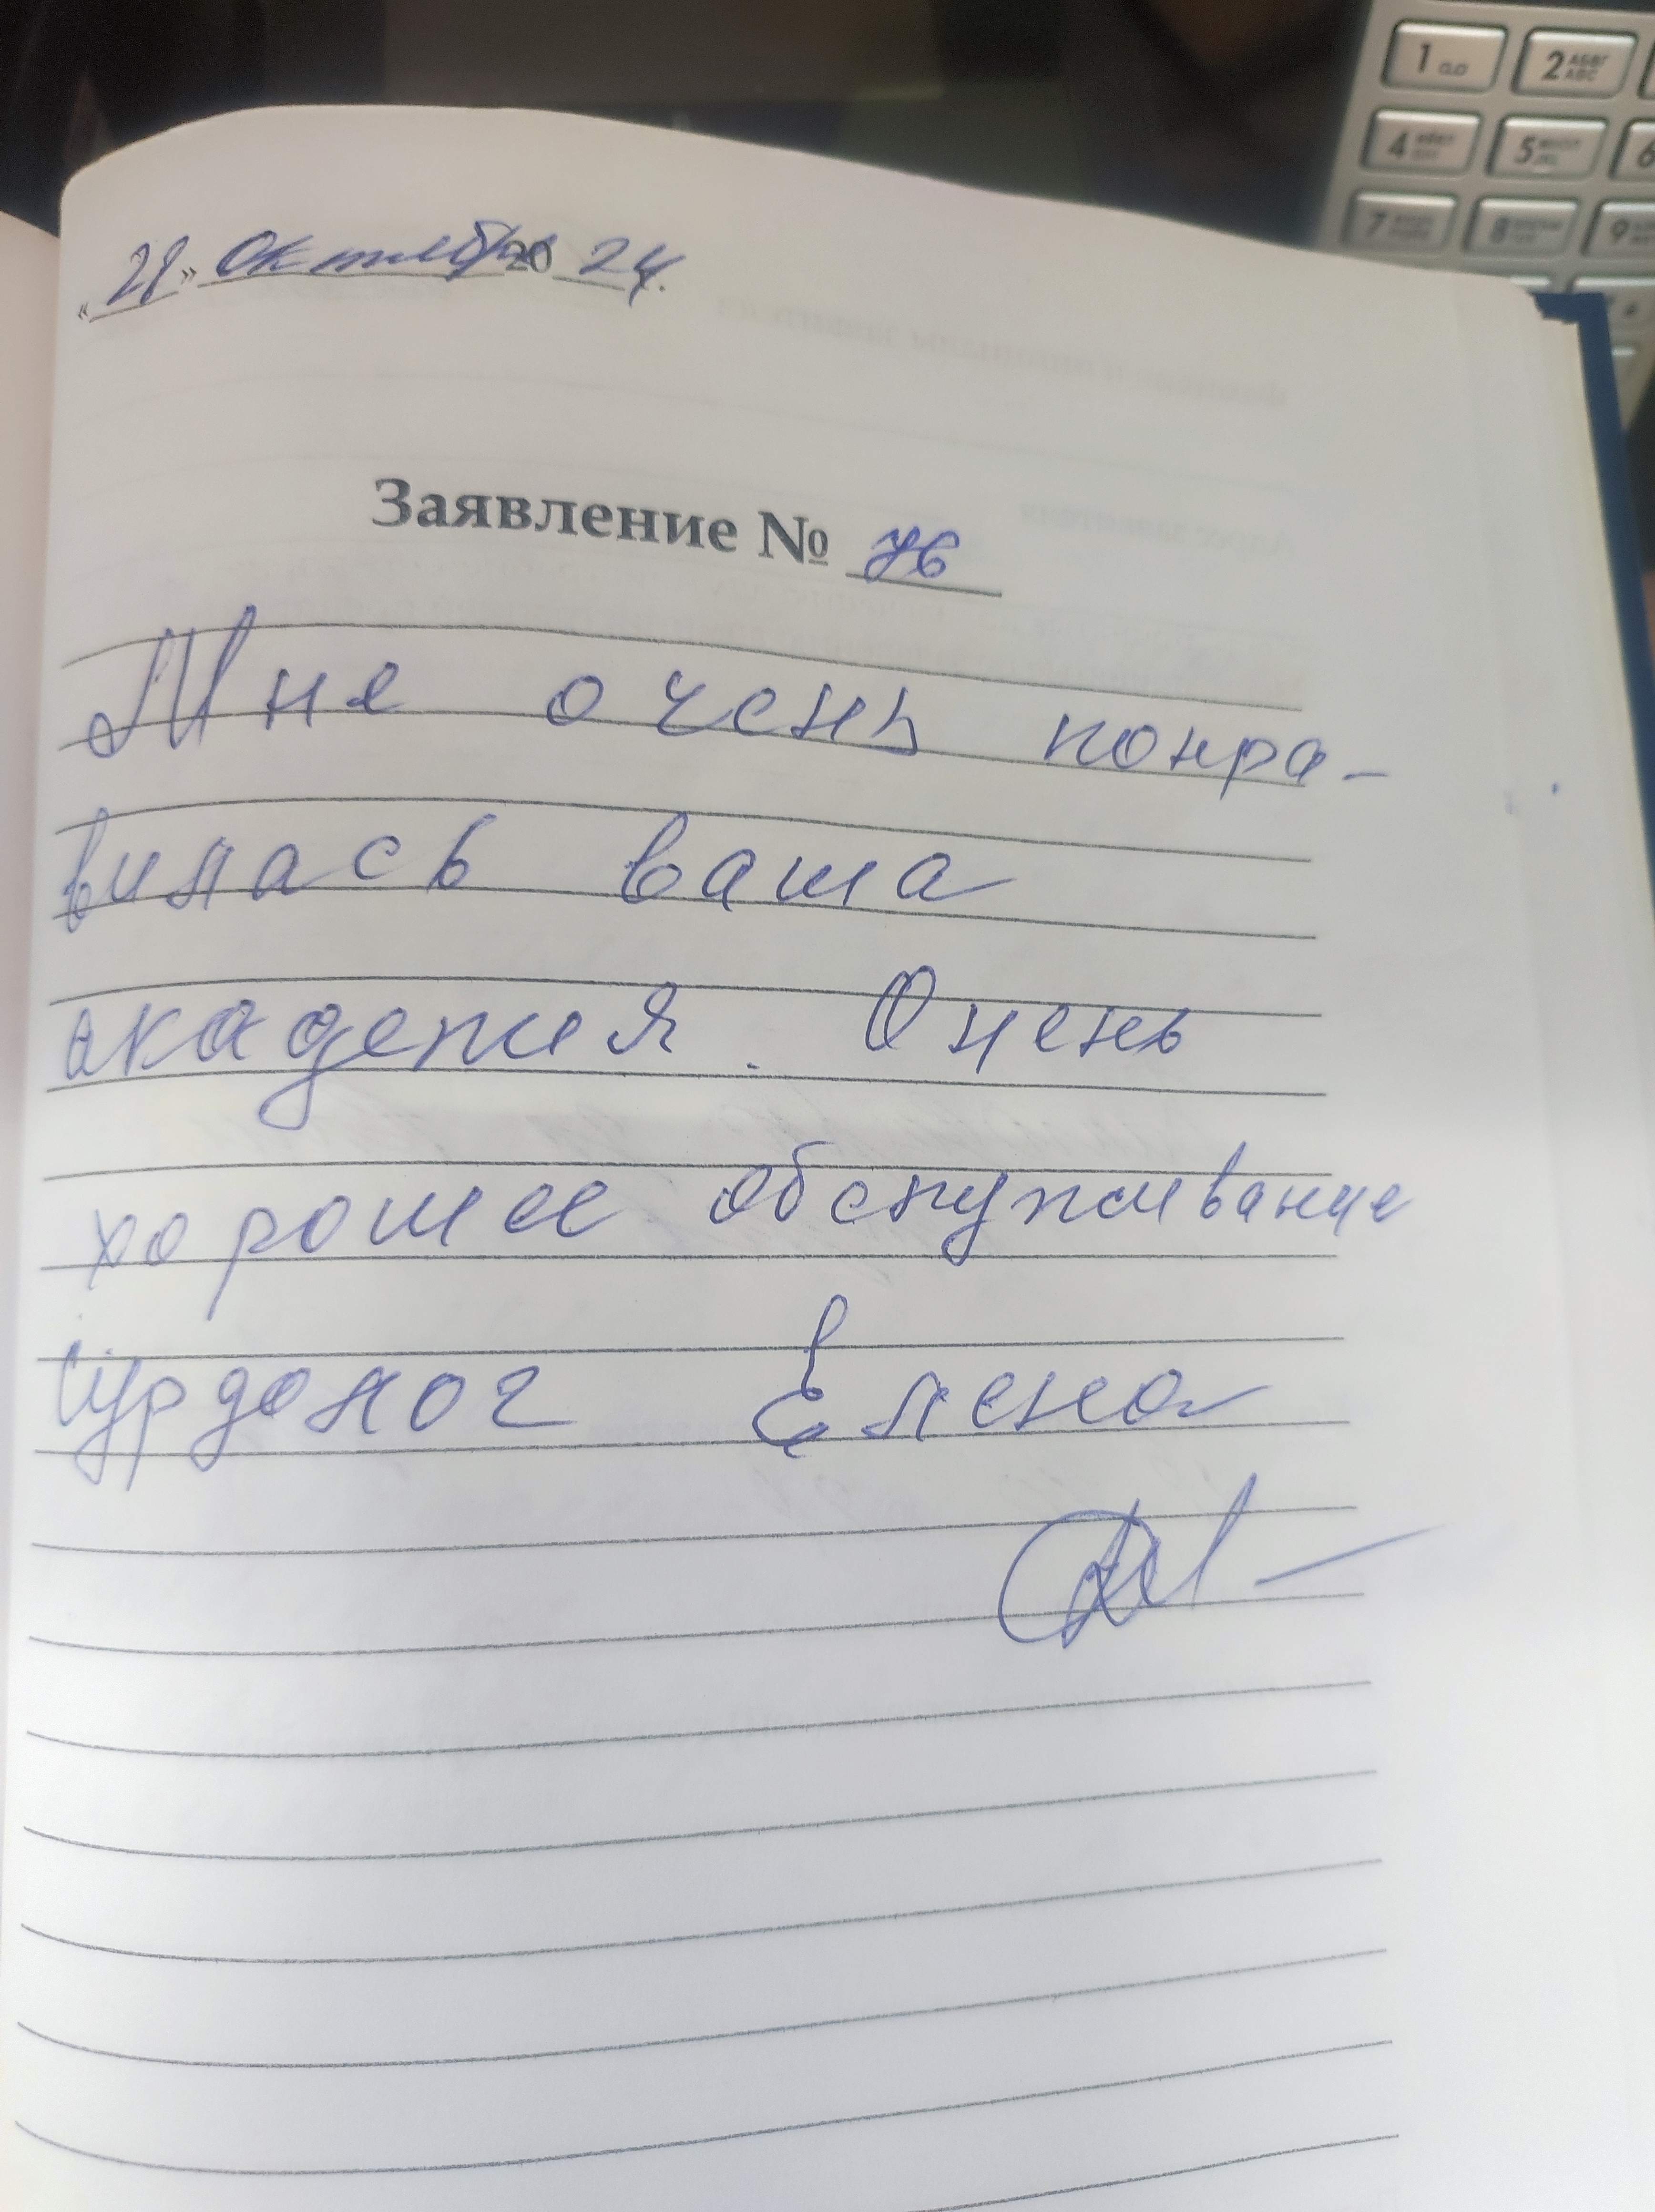 «28» Октября 2024.
Заявление № 76
Мне очень понра-
вилась ваша
академия. Очень
хорошее обслуживание
Сурдолог Елена
1 2 АБВГ ABC
4 5 6
7 8 9